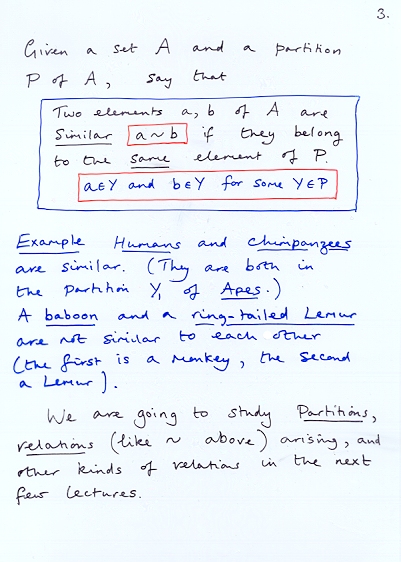 3.
Given a set A and a partition
P of A, say that
Two elements a, b of A are
Similar a ~ b if they belong
to the same element of P.
a ∈ Y and b ∈ Y for some Y ∈ P
Example Humans and Chimpanzees
are similar. (They are both in
the partition Y₁ of Apes.)
A baboon and a ring-tailed Lemur
are not similar to each other
(the first is a monkey, the second
a Lemur).
We are going to study Partitions,
relations (like ~ above) arising, and
other kinds of relations in the next
few lectures.